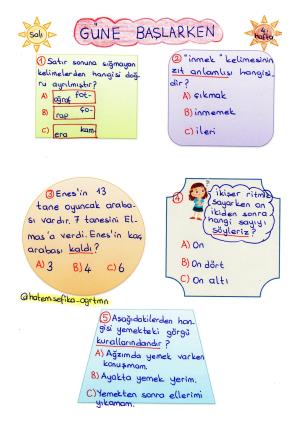 Salı
GÜNE BAŞLARKEN
4. hafta
① Satır sonuna sığmayan
kelimelerden hangisi doğ-
ru ayrılmıştır?
A) fot-
oğraf
B) ço-
rap
C) kam-
era
② "inmek" kelimesinin
zıt anlamlısı hangisi-
dir?
A) çıkmak
B) inmemek
C) ileri
③ Enes'in 13
tane oyuncak araba-
sı vardır. 7 tanesini El-
mas'a verdi. Enes'in kaç
arabası kaldı?
A) 3 B) 4 C) 6
④ ikişer ritmik
sayarken on
ikiden sonra
hangi sayıyı
söyleriz?
A) On
B) On dört
C) On altı
@hatem-sefika-ogrtmn
⑤ Aşağıdakilerden han-
gisi yemekteki görgü
kurallarındandır?
A) Ağzımda yemek varken
konuşmam.
B) Ayakta yemek yerim.
C) Yemekten sonra ellerimi
yıkamam.